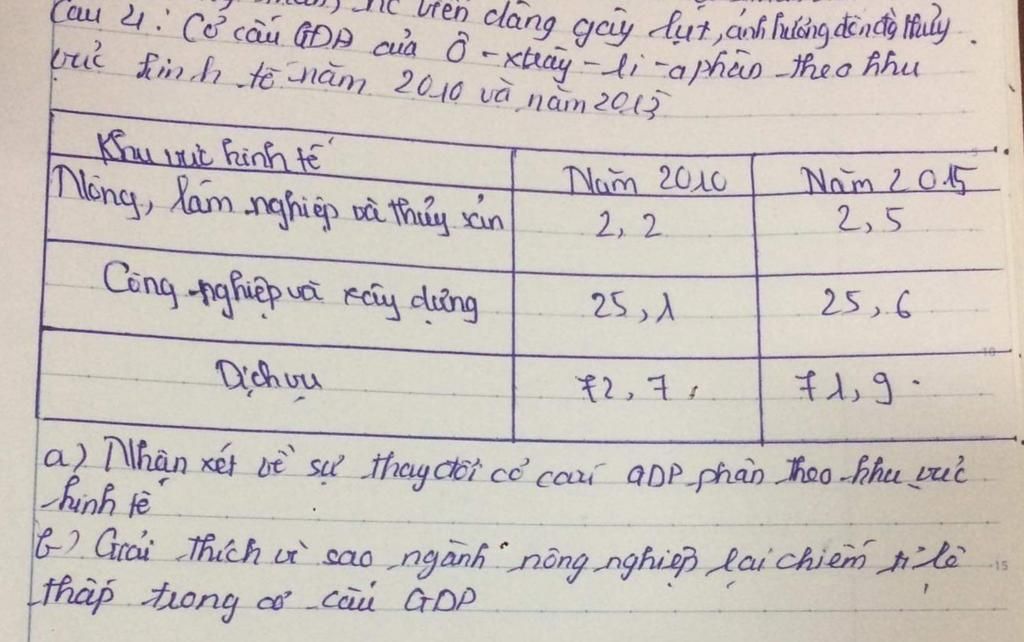 viên dâng gây lụt, ảnh hưởng đến đờ thủy.
Câu 4: Cơ cấu GDP của Ô-xtrây-li-a phân theo khu
vực kinh tế năm 2010 và năm 2015
Khu vực kinh tế Năm 2010 Năm 2015
Nông, lâm nghiệp và thủy sản 2,2 2,5
Công nghiệp và xây dựng 25,1 25,6
Dịch vụ 72,7 71,9
a) Nhận xét về sự thay đổi cơ cấu GDP phân theo khu vực
kinh tế
b) Giải thích vì sao ngành nông nghiệp lại chiếm tỉ lệ
thấp trong cơ cấu GDP